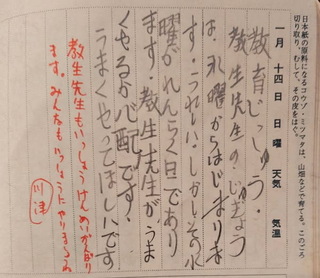 日本紙の原料になるコウゾ・ミツマタは、山畑などで育てる。このごろ
切り取り、むして、その皮をはぐ。
一月 十四日 日曜 天気 気温
教育じっしゅう・
教生先生の、じゅぎょう
は、水曜からはじまりま
す・うっせい・しかしその水
曜がれんらく日であり
ます・教生先生がうま
くやるか心配です・
うまくやってほしいです
教生先生もいっしょうけんめいがんばり
ます。みんなもいっしょうに やりましょうね
川津